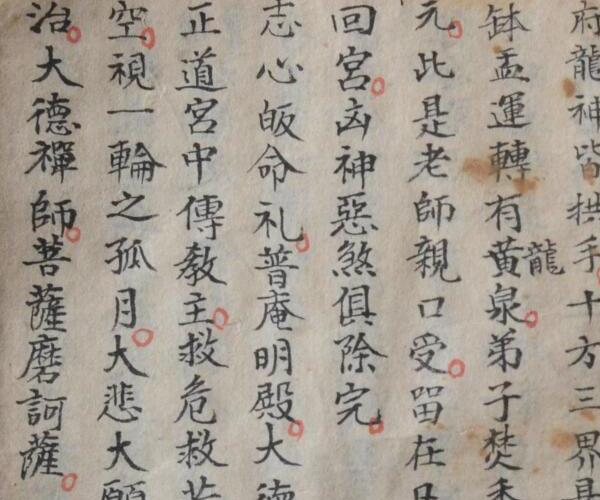 府龍神皆拱手十方三界
鉢盂運轉有黃龍泉弟子焚香
元此是老師親口受留在
回宮凶神惡煞俱除完
志心皈命礼普庵明殿大德
正道宮中傳教主救危救苦
空視一輪之孤月大悲大願
治大德禪師菩薩磨訶薩